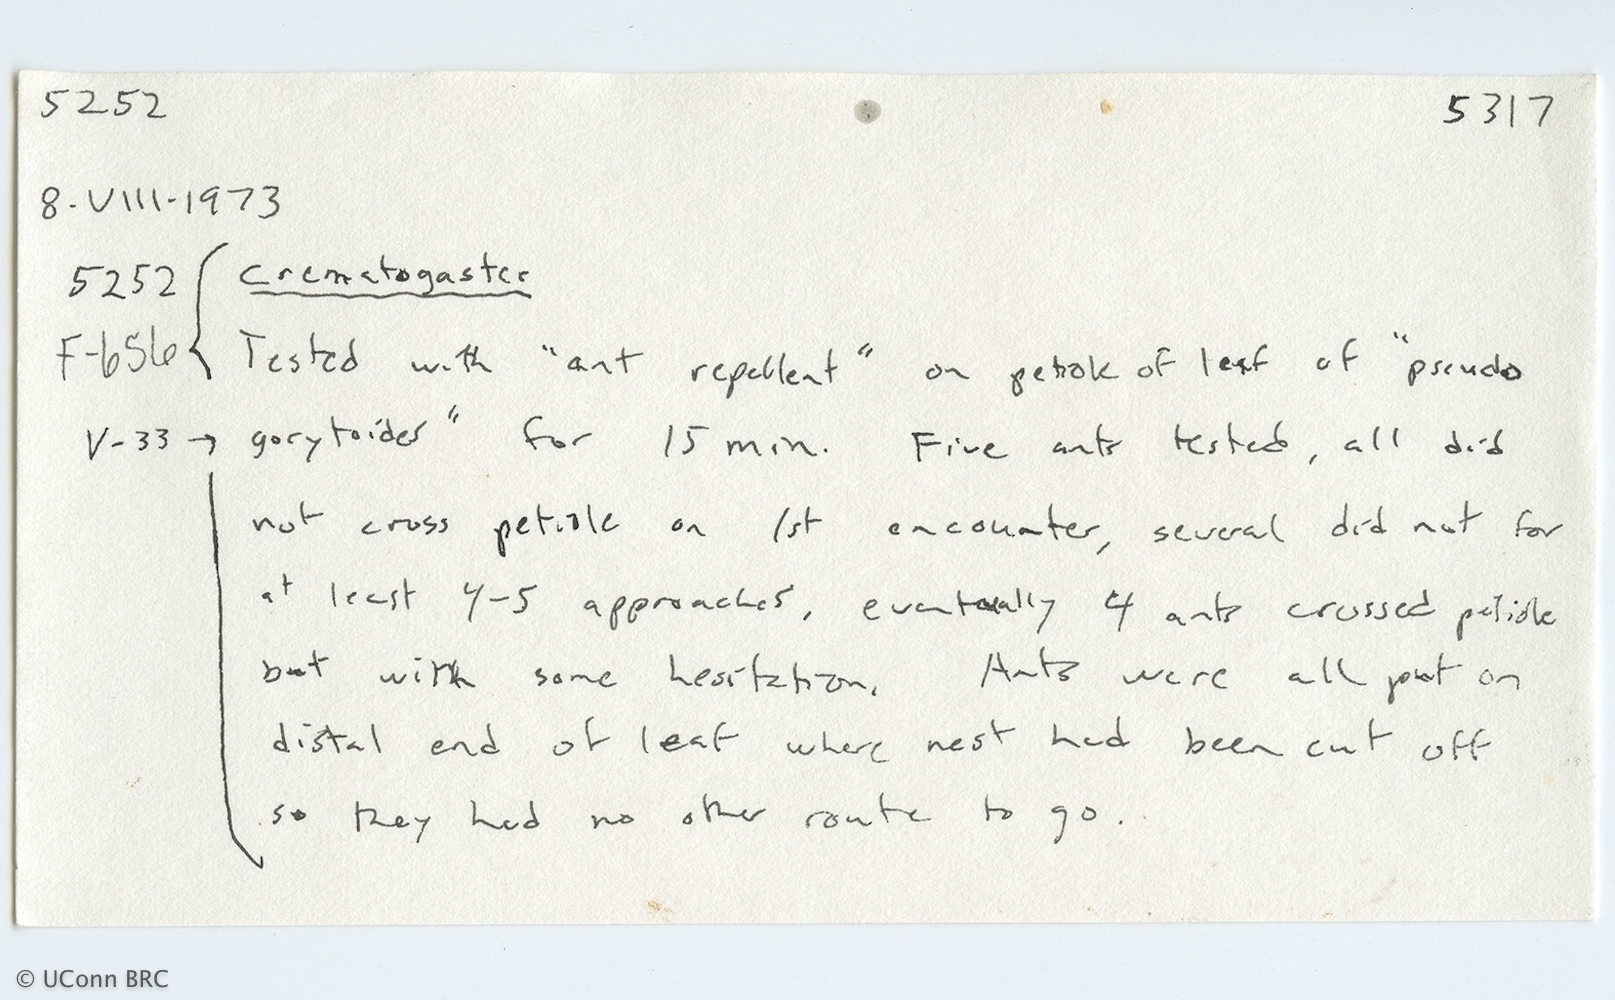 5252 5317
8-VIII-1973
5252 Crematogaster
F-656 Tested with "ant repellent" on petiole of leaf of "pseudo
V-33 → gorytoides" for 15 min. Five ants tested, all did
not cross petiole on 1st encounter, several did not for
at least 4-5 approaches, eventually 4 ants crossed petiole
but with some hesitation. Ants were all put on
distal end of leaf where nest had been cut off
so they had no other route to go.
© UConn BRC